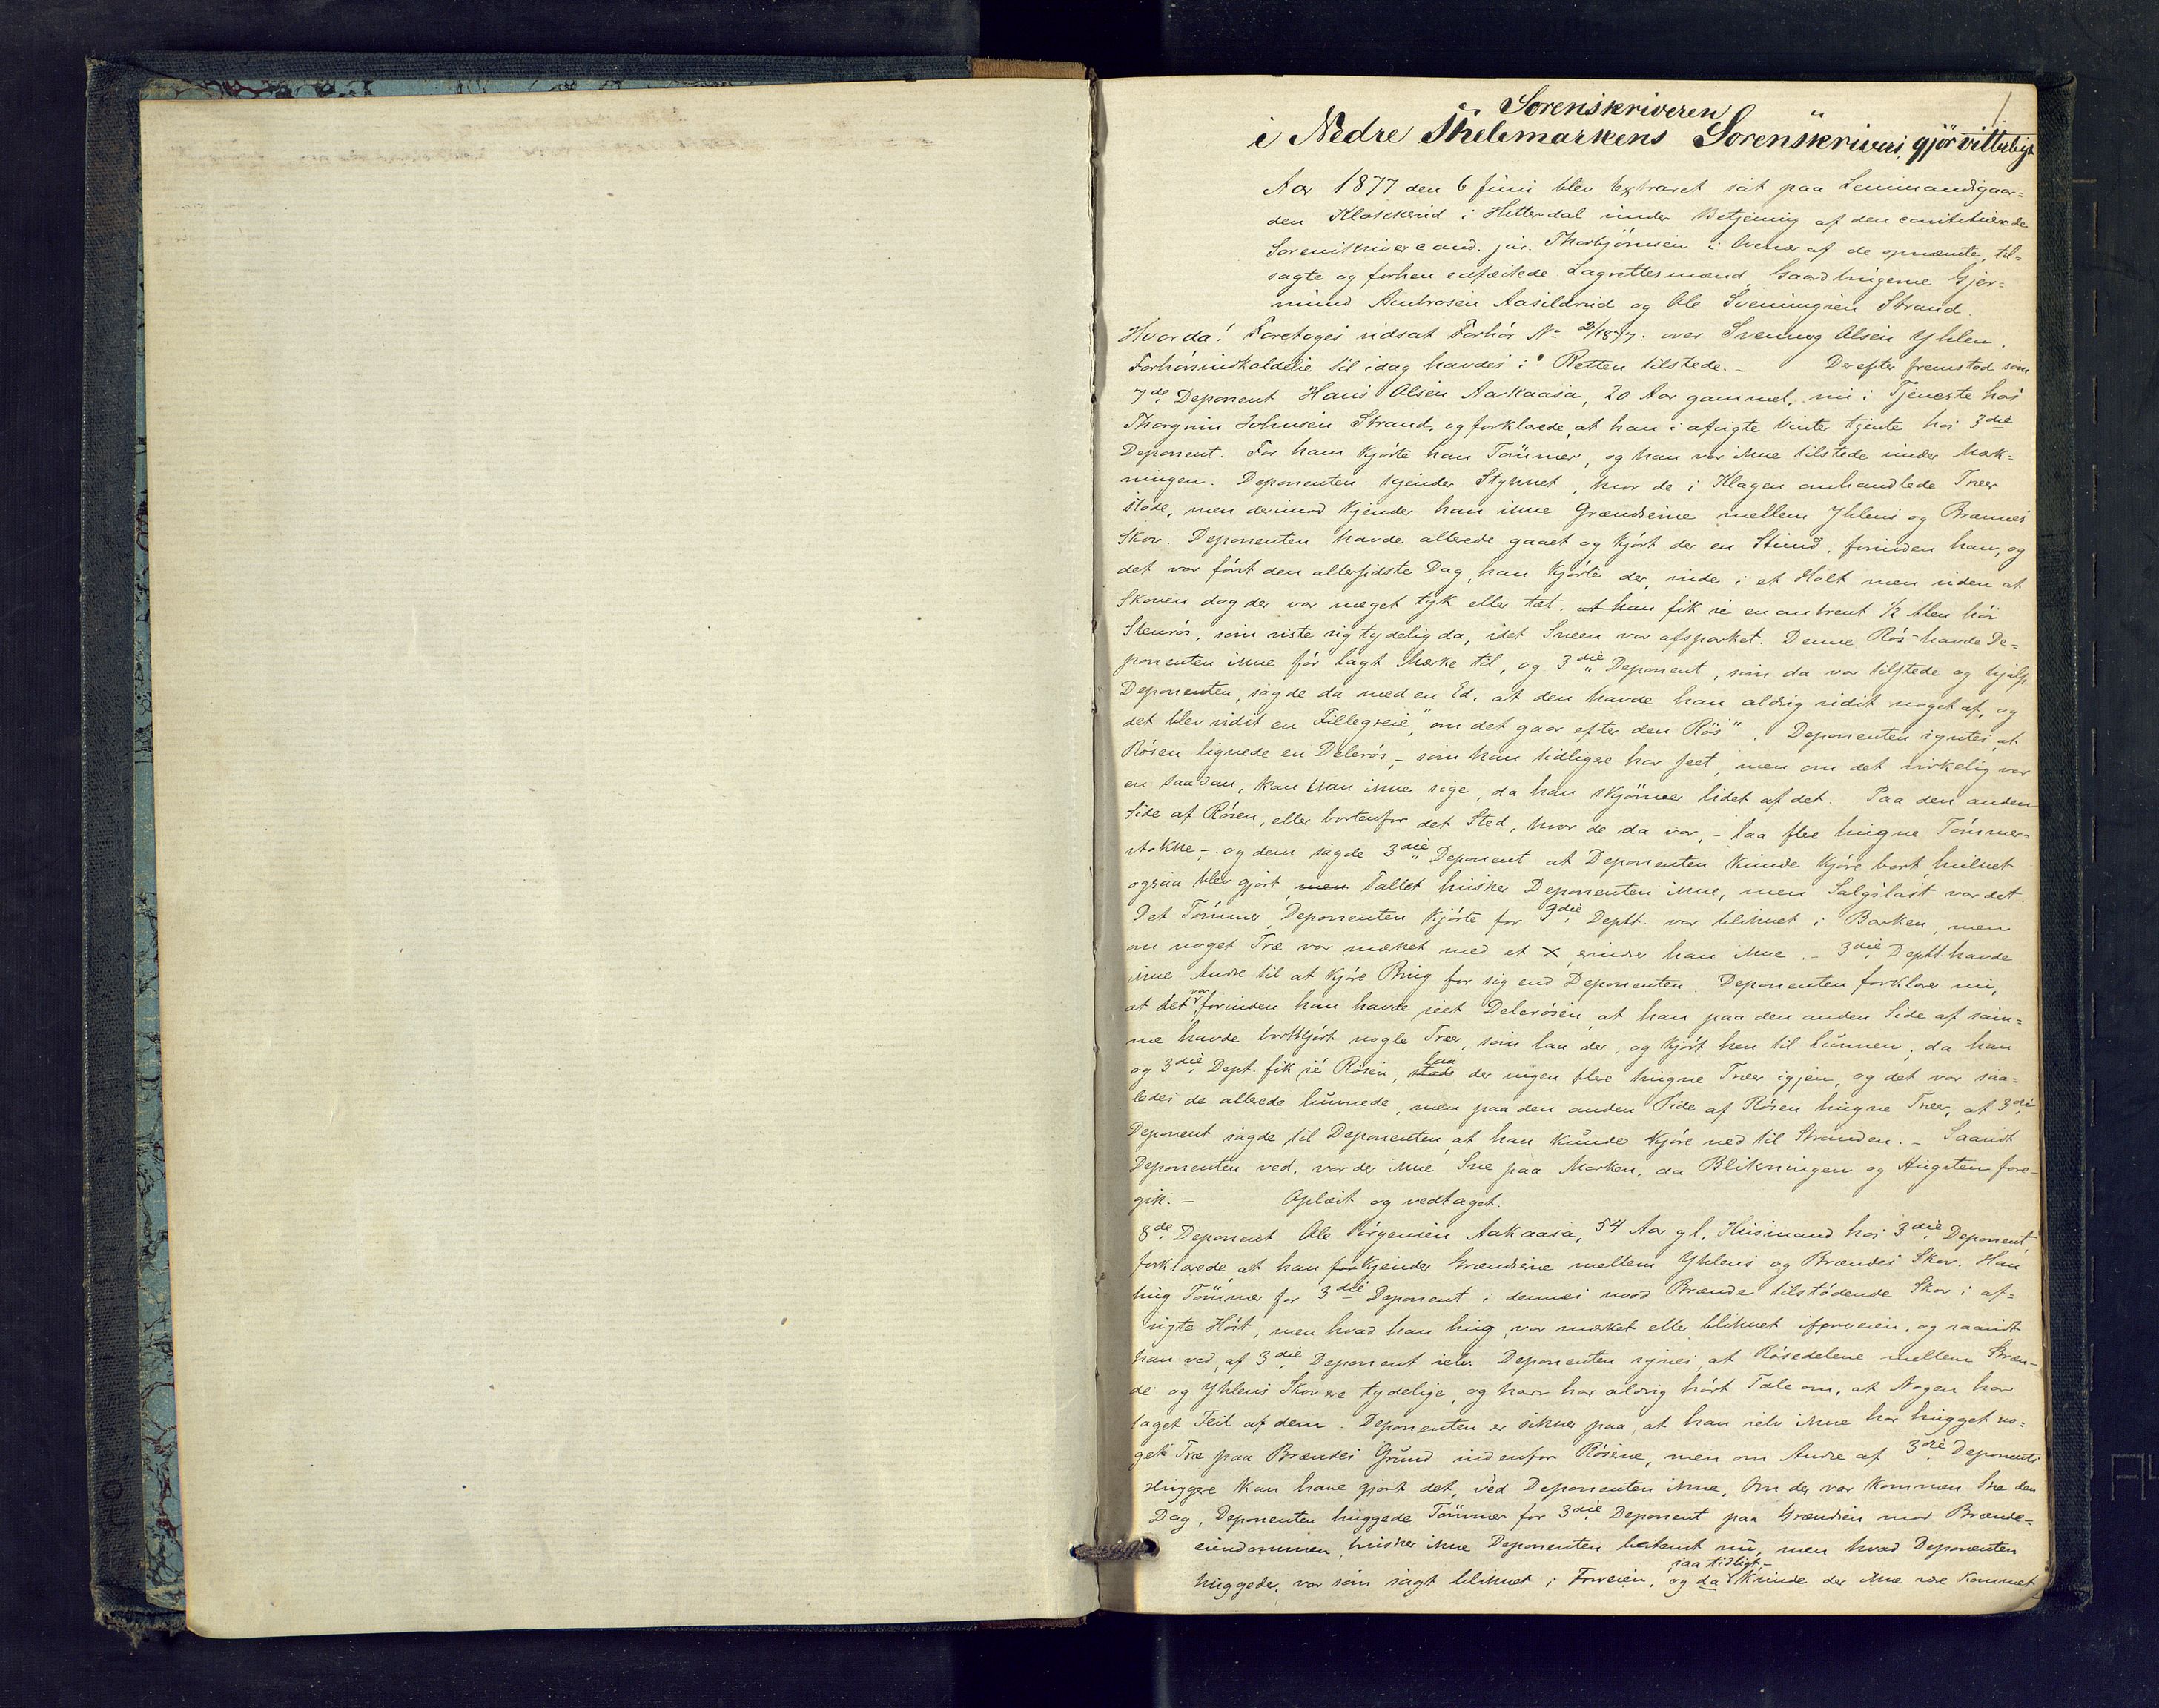 1
Sorenskriveren
i Nedre Thelemarkens Sorenskriveri, gjör vitterligt
Aar 1877 den 6 Juni blev Extraret sat paa Lensmandsgaar=
den Klokkerud i Hitterdal under Betjening af den constituerede
Sorenskriver cand. jur. Thorbjörnsen i Overvær af de opnævnte, til=
sagte og forhen edfæstede Lagrettesmænd Gaardbrugerne Gjer=
mund Ambrosen Aasildrud og Ole Sveningsen Strand.
Hvorda! Foretoges udsat Forhör No 2/1877: over Svenning Olsen Yhlen.
Forhörsindkaldelse til idag havdes i Retten tilstede. – Derefter fremstod som
7de Deponent Hans Olsen Aakaasa, 20 Aar gammel, nu i Tjeneste hos
Thorgrim Johnsen Strand, og forklarede, at han i afvigte Vinter tjente hos 3die
Deponent. For ham kjörte han Tömmer, og han var ikke tilstede under Mærk=
ningen. Deponenten kjender Stykket, hvor de i Klagen omhandlede Træer
stode, men derimod kjender han ikke Grændserne mellem Yhlens og Brænnes
Skov. Deponenten havde allerede gaaet og kjört der en Stund, forinden han, og
det var först den allersidste Dag, han kjörte der, inde i et Holt men uden at
Skoven dog der var meget tyk eller tæt, at han fik se en omtrent 1/2 Alen höi
Stenrös, som viste sig tydelig da, idet Sneen var afsparket. Denne Rös havde De=
ponenten ikke för lagt Mærke til, og 3die Deponent, som da var tilstede og hjalp
Deponenten, sagde da med en Ed, at den havde han aldrig vidst noget af, og
det blev vidst en Fillegreie, "om det gaar efter den Rös". Deponenten syntes, at
Rösen lignede en Delerös, – som han tidligere har seet, men om det virkelig var
en saadan, kan han ikke sige, da han skjönner lidet af det. Paa den anden
Side af Rösen, eller bortenfor det Sted, hvor de da var, – laa flere hugne Tömmer=
stokke –, og dem sagde 3die Deponent at Deponenten kunde kjöre bort, hvilket
ogsaa blev gjort men Tallet husker Deponenten ikke, men Salgslast var det.
Det Tömmer, Deponenten kjörte for 3die Deptt. var blinket i Barken, men
om noget Træ var mærket med et X, erindrer han ikke. – 3die Deptt. havde
ikke Andre til at kjöre Brug for sig end Deponenten. Deponenten forklarer nu,
at det var forinden han havde seet Delerösen, at han paa den anden Side af sam=
me havde bortkjört nogle Træer, som laa der, og kjört hen til Lunnen; da han
og 3die Dept. fik se Rösen, stode laa der ingen flere hugne Træer igjen, og det var saa=
ledes de allerede lunnede, men paa den anden Side af Rösen hugne Træer, at 3die
Deponent sagde til Deponenten, at han kunde kjöre ned til Stranden. – Saavidt
Deponenten ved, var der ikke Sne paa Marken, da Blikningen og Hugsten fore=
gik. – Oplæst og vedtaget.
8de Deponent Ole Jörgensen Aakaasa, 54 Aar gl., Husmand hos 3die Deponent,
forklarede, at han for kjender Grændserne mellem Yhlens og Brændes Skov. Han
hug Tömmer for 3die Deponent i dennes mod Brænde tilstödende Skov i af=
vigte Höst, men hvad han hug, var mærket eller blinket iforveien, og saavidt
han ved, af 3die Deponent selv. Deponenten synes, at Rösedelene mellem Bræn=
de og Yhlens Skov ere tydelige, og han har aldrig hört Tale om, at Nogen har
taget Feil af dem. Deponenten er sikker paa, at han selv ikke har hugget no=
get Træ paa Brændes Grund indenfor Rösene, men om Andre af 3die Deponents
Huggere kan have gjort det, ved Deponenten ikke. Om der var kommen Sne den
Dag, Deponenten huggede Tömmer for 3die Deponent paa Grændsen mod Brænde=
eiendommen, husker ikke Deponenten bestemt nu, men hvad Deponenten
huggede, var som sagt blinket i Forveien, og da saa tidligt – kunde der ikke være kommet